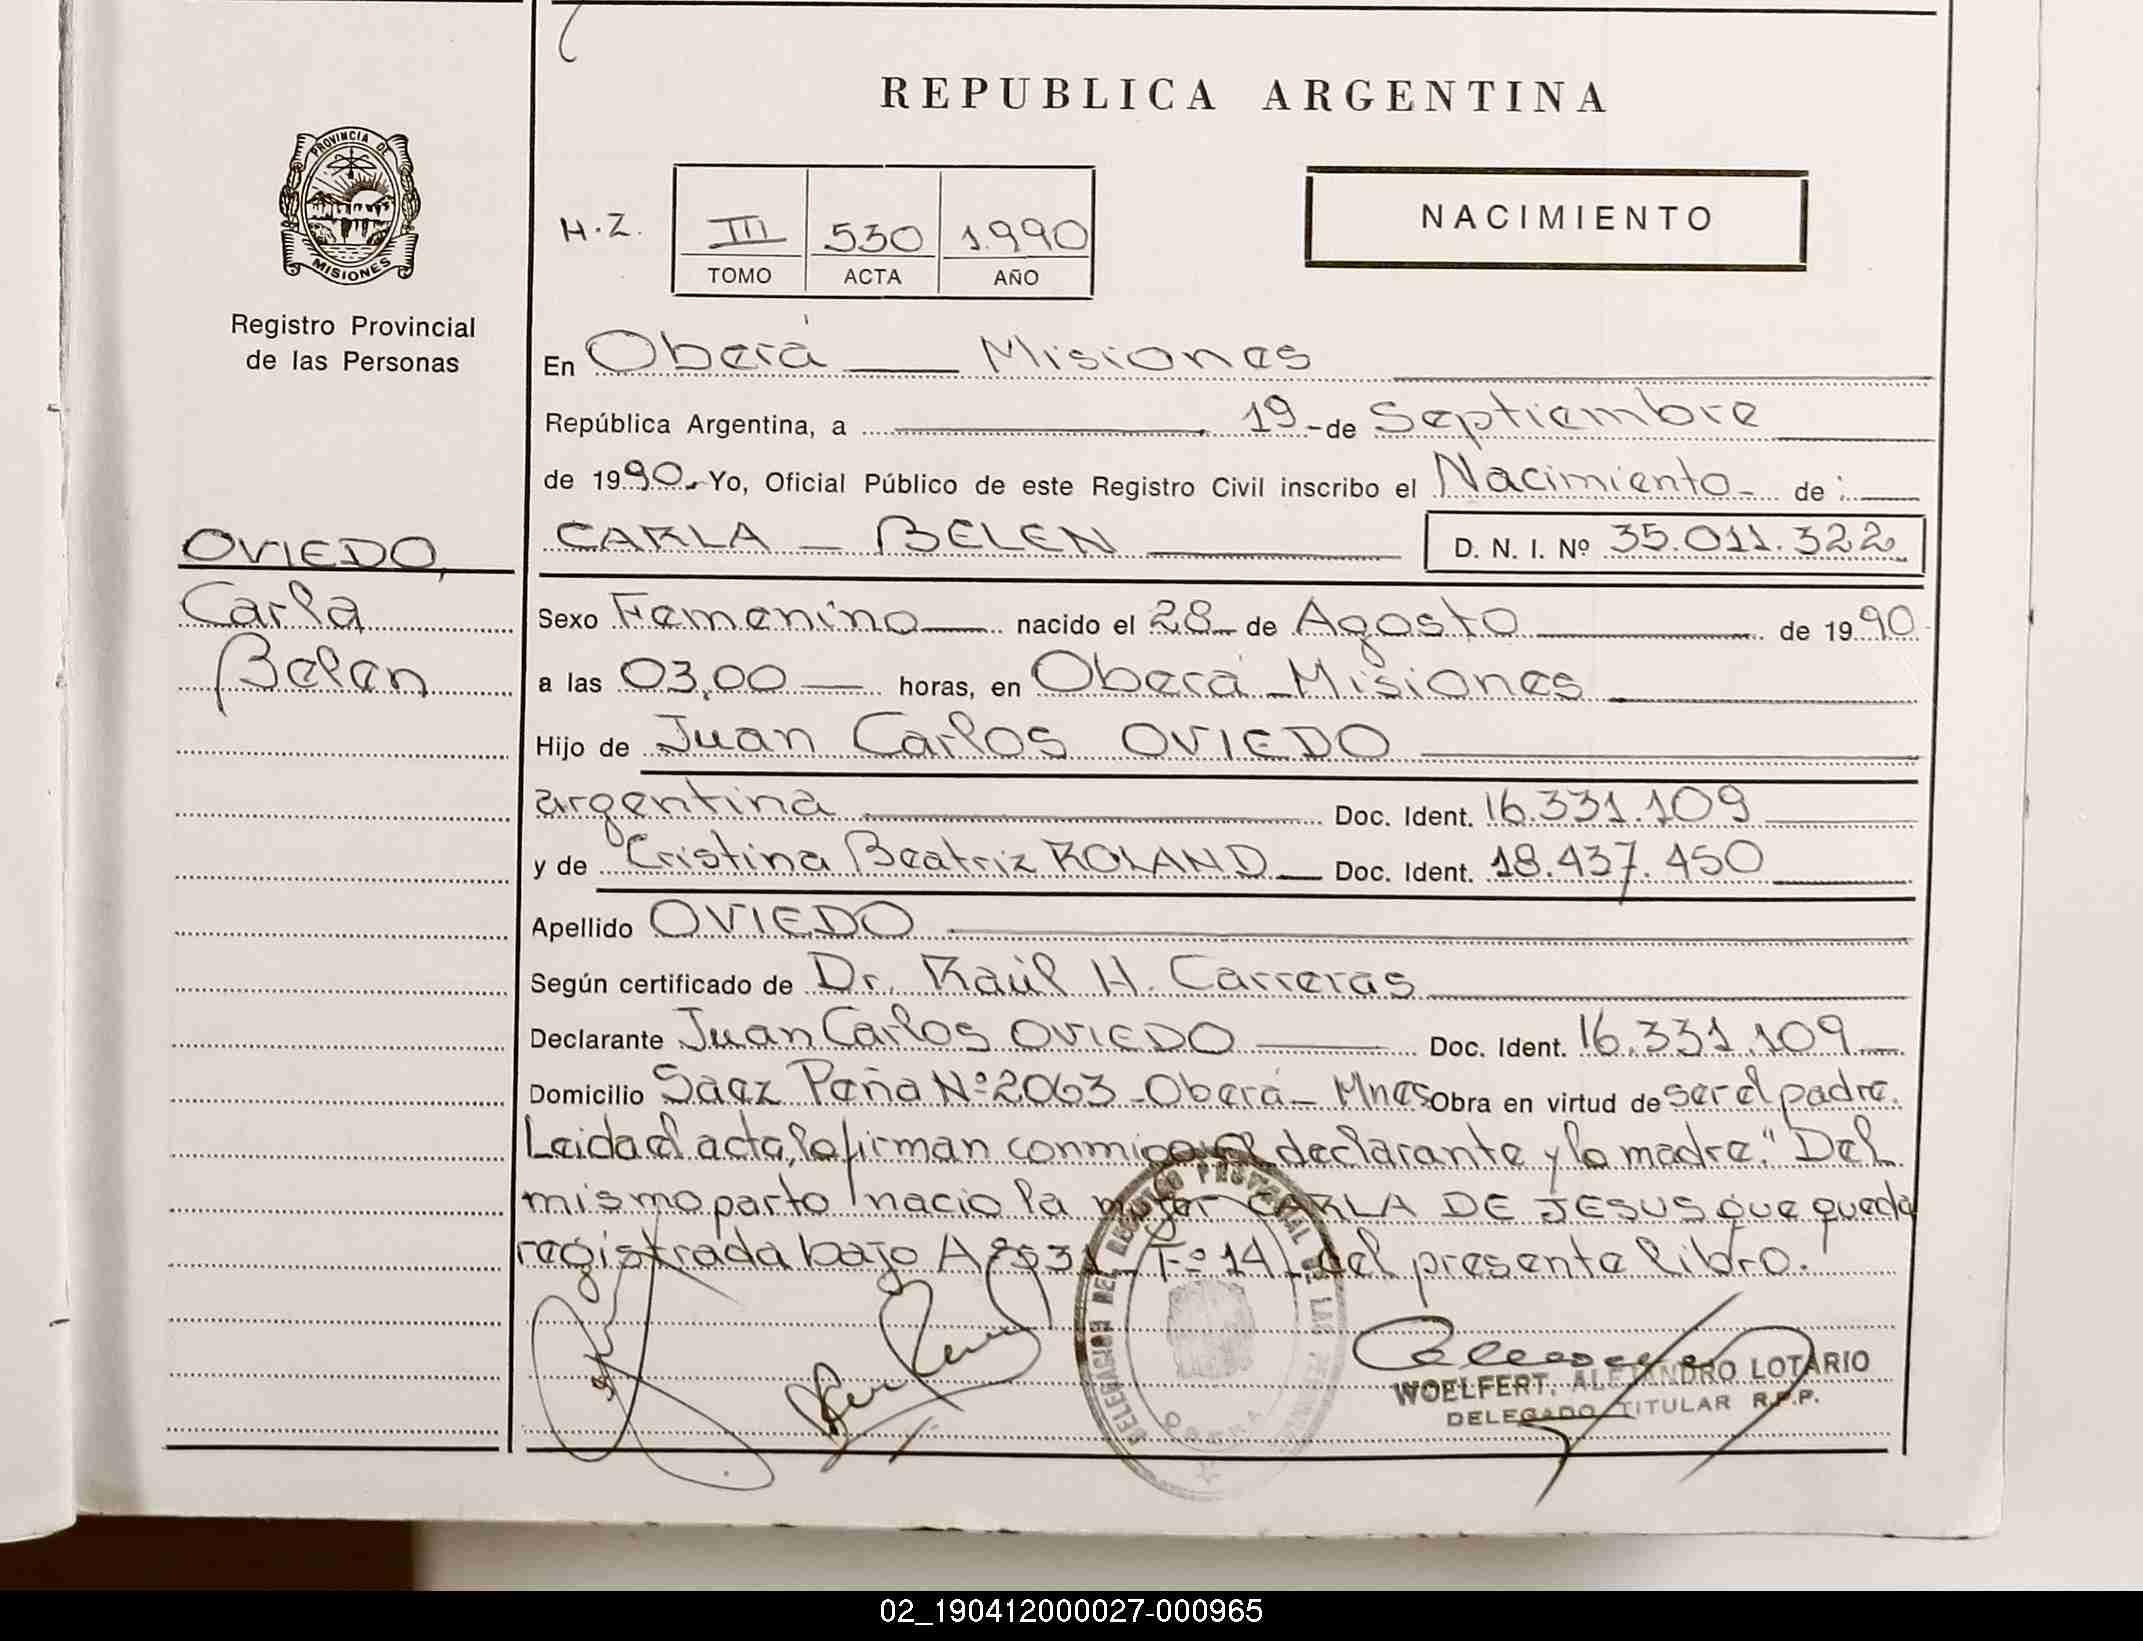 REPUBLICA ARGENTINA
PROVINCIA DE
MISIONES
Registro Provincial
de las Personas
H.Z.
III 530 1.990
TOMO ACTA AÑO
NACIMIENTO
En Oberá — Misiones
República Argentina, a 19 - de Septiembre
de 1990 - Yo, Oficial Público de este Registro Civil inscribo el Nacimiento - de :
OVIEDO,
Carla
Belen
CARLA — BELEN D. N. I. Nº 35.011.322
Sexo Femenino nacido el 28 de Agosto de 1990
a las 03,00 horas, en Oberá - Misiones
Hijo de Juan Carlos OVIEDO
argentina Doc. Ident. 16.331.109
y de Cristina Beatriz ROLAND Doc. Ident. 18.437.450
Apellido OVIEDO
Según certificado de Dr. Raúl H. Carreras
Declarante Juan Carlos OVIEDO Doc. Ident. 16.331.109
Domicilio Saez Peña Nº 2063 - Oberá - Mnes Obra en virtud de ser el padre.
Leida el acta, la firman conmigo el declarante y la madre." Del
mismo parto nacio la mujer CARLA DE JESUS que queda
registrada bajo Aº 531 Fº 141 del presente libro.
DELEGACION DEL REGISTRO PROVINCIAL DE LAS PERSONAS
OBERA
WOELFERT, ALEJANDRO LOTARIO
DELEGADO TITULAR R.P.P.
02_190412000027-000965